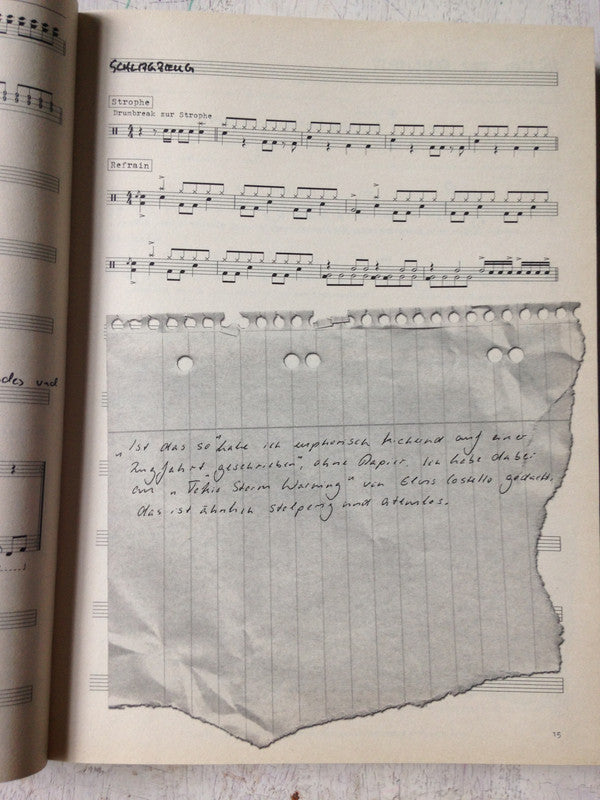 SCHLAGZEUG
Strophe
Drumbreak zur Strophe
Refrain
des und
„Ist das so" habe ich euphorisch kichernd auf einer
Zugfahrt „geschrieben", ohne Papier. Ich habe dabei
an „Tokio Storm Warning" von Elvis Costello gedacht,
das ist ähnlich stolperig und atemlos.
15